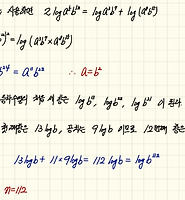 사용하면 2 log a⁵b¹² = log a³b⁷ + log (a⁴b¹²)
)² = log (a³b⁷ × a⁴b¹²)
b²⁴ = a¹¹b²² ∴ a = b²
처음 세 항은 log b¹³, log b²², log b³¹ 이 된다
첫째항은 13 log b, 공차는 9 log b 이므로 12번째 항은
13 log b + 11 × 9 log b = 112 log b = log b¹¹²
n = 112